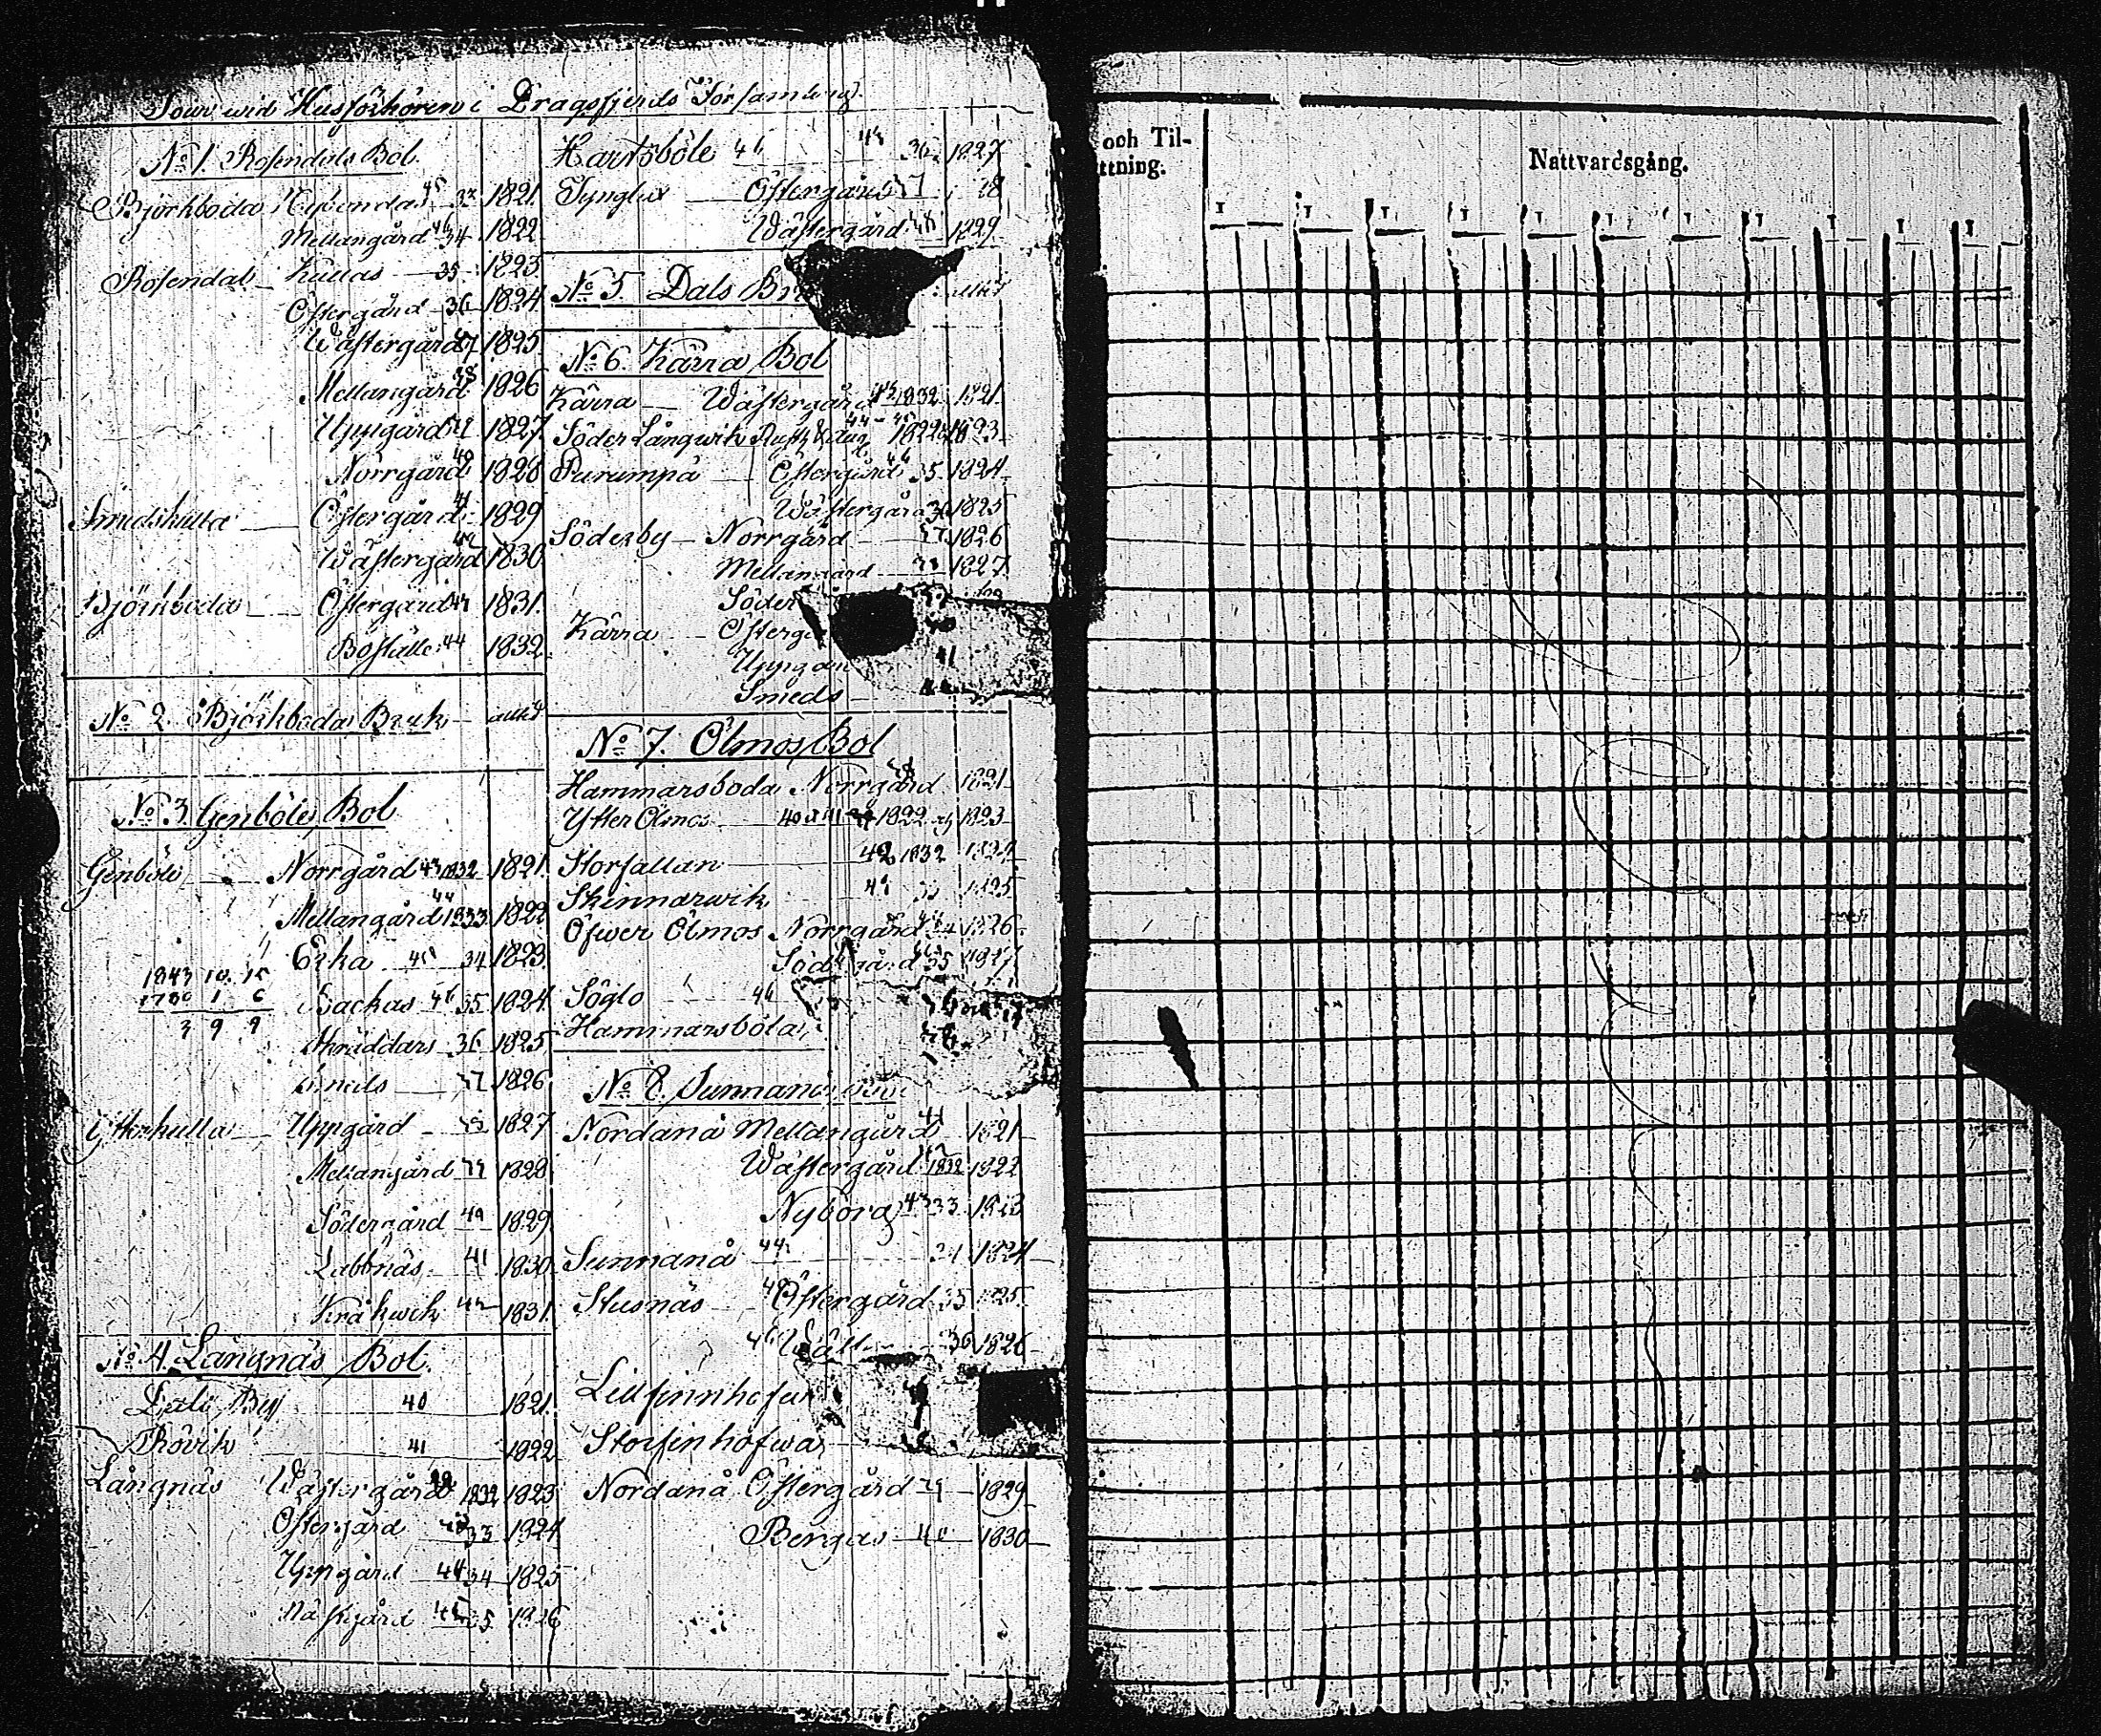 Tour wid Husförhören i Dragsfjerds Församling
No 1. Rosendals Bol
Björkboda Nybondas 45 33 1821.
Mellangård 46 34 1822
Rosendal Kullas 35 1823.
Östergård 36 1824.
Wästergård 37 1825
Mellangård 38 1826
Uppgård 39 1827
Norrgård 40 1828
Smedskulla Östergård 41 1829
Wästergård 42 1830
Björnboda Östergård 43 1831.
Boställe 44 1832.
No 2. Björkboda Bruk alltid
No 3 Genböle Bol
Genböle Norrgård 43 1832 1821
Mellangård 44 1833 1822
Erka 45 34 1823
1843 10. 15
1780 1 6
3 9 9
Backas 46 35 1824
Skräddars 36 1825
Smeds 37 1826
Ytterkulla Uppgård 38 1827
Mellangård 39 1828
Södergård 40 1829
Labbnäs 41 1830
Kråkwik 42 1831
No 4. Långnäs Bol.
Dals By 40 1821.
Rövik 41 1822
Långnäs Wästergård 1832 1823
Östergård 33 1824
Uppgård 44 34 1825
Näsgård 45 35 1826
Hartsböle 46 36 1827
Tynglax Östergård 37 28
Wästergård 38 1829
No 5. Dals
No 6 Kärra Bol
Kärra Wästergård 43 1832 1821
Söder Långwik 44 45 1822 1823
Purumpå Östergård 46 35 1824
Wästergård 36 1825
Söderby Norrgård 37 1826
Mellangård 38 1827
Söder
Kärra Österg 40
Uppgår 41
Smeds
No 7. Ölmos Bol
Hammarsboda Norrgård 1821
Ytter Ölmos 40 1822 1823
Storfallan 42 1832 1824
Skinnarwik 43 33 1825
Öfwer Ölmos Norrgård 34 1826
Södergård 35 1827
Söglo 46
Hammarsböla
No 8. Sunnanå
Nordanå Mellangård 41 1821
Wästergård 1832 1822
Nyborg 43 33 1823
Sunnanå 44 34 1824
Stusnäs Östergård 35 1825
46 36 1826
Lillfinnhofwa
Storfinhofwa
Nordanå Östergård 39 1829
Bergas 40 1830
och Til-
ttning.
Nattvardsgång.